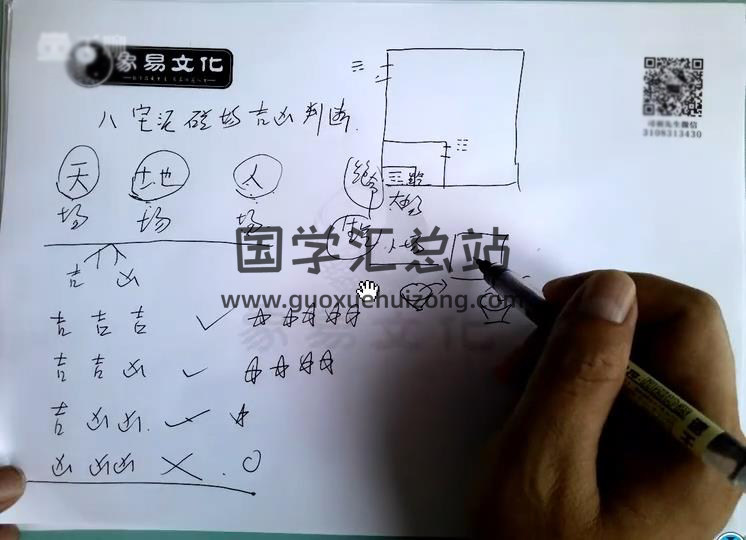 象易文化
3108313430
八宅派磁场吉凶判断.
天 地 人
场 场 场
绝命
大场
生气 小场
国学汇总站
www.guoxuehuizong.com
象易文化
吉 凶
吉 吉 吉
吉 吉 凶
吉 凶 凶.
凶 凶 凶 . 0